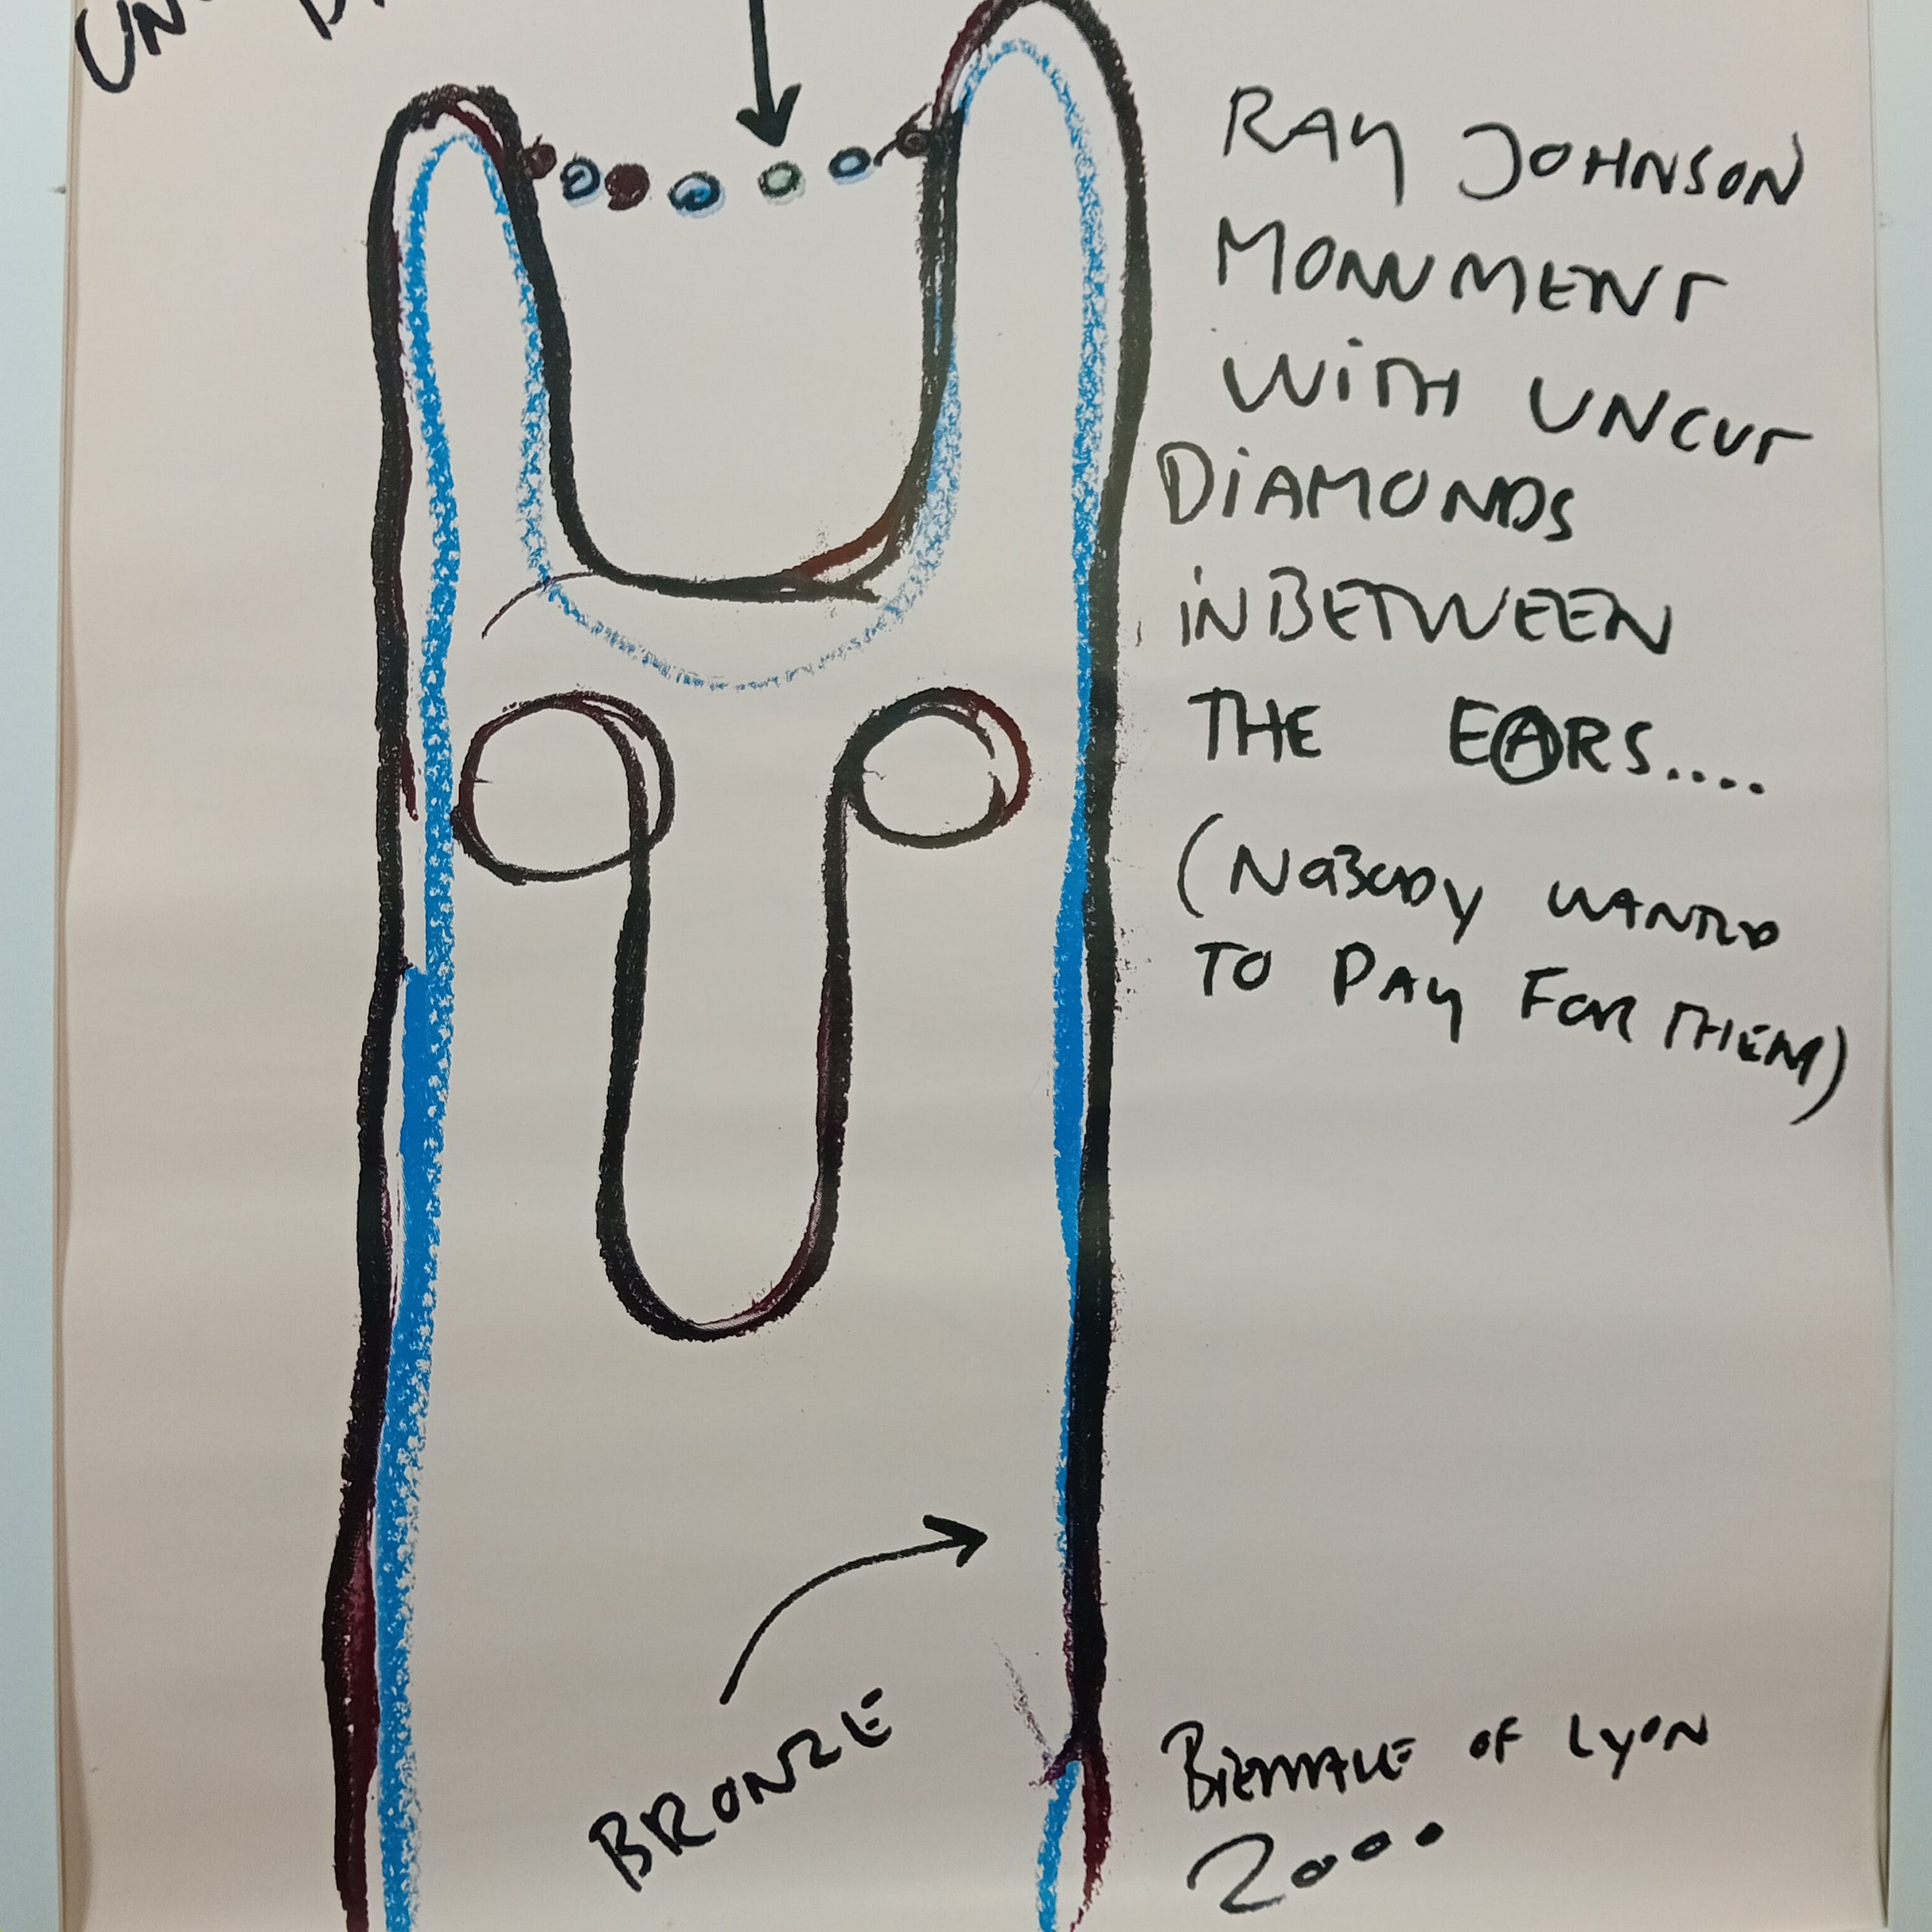 UN
RAY JOHNSON
MONUMENT
WITH UNCUT
DIAMONDS
INBETWEEN
THE EARS....
(NOBODY WANTED
TO PAY FOR THEM)
BRONZE
BIENNALE OF LYON
2000